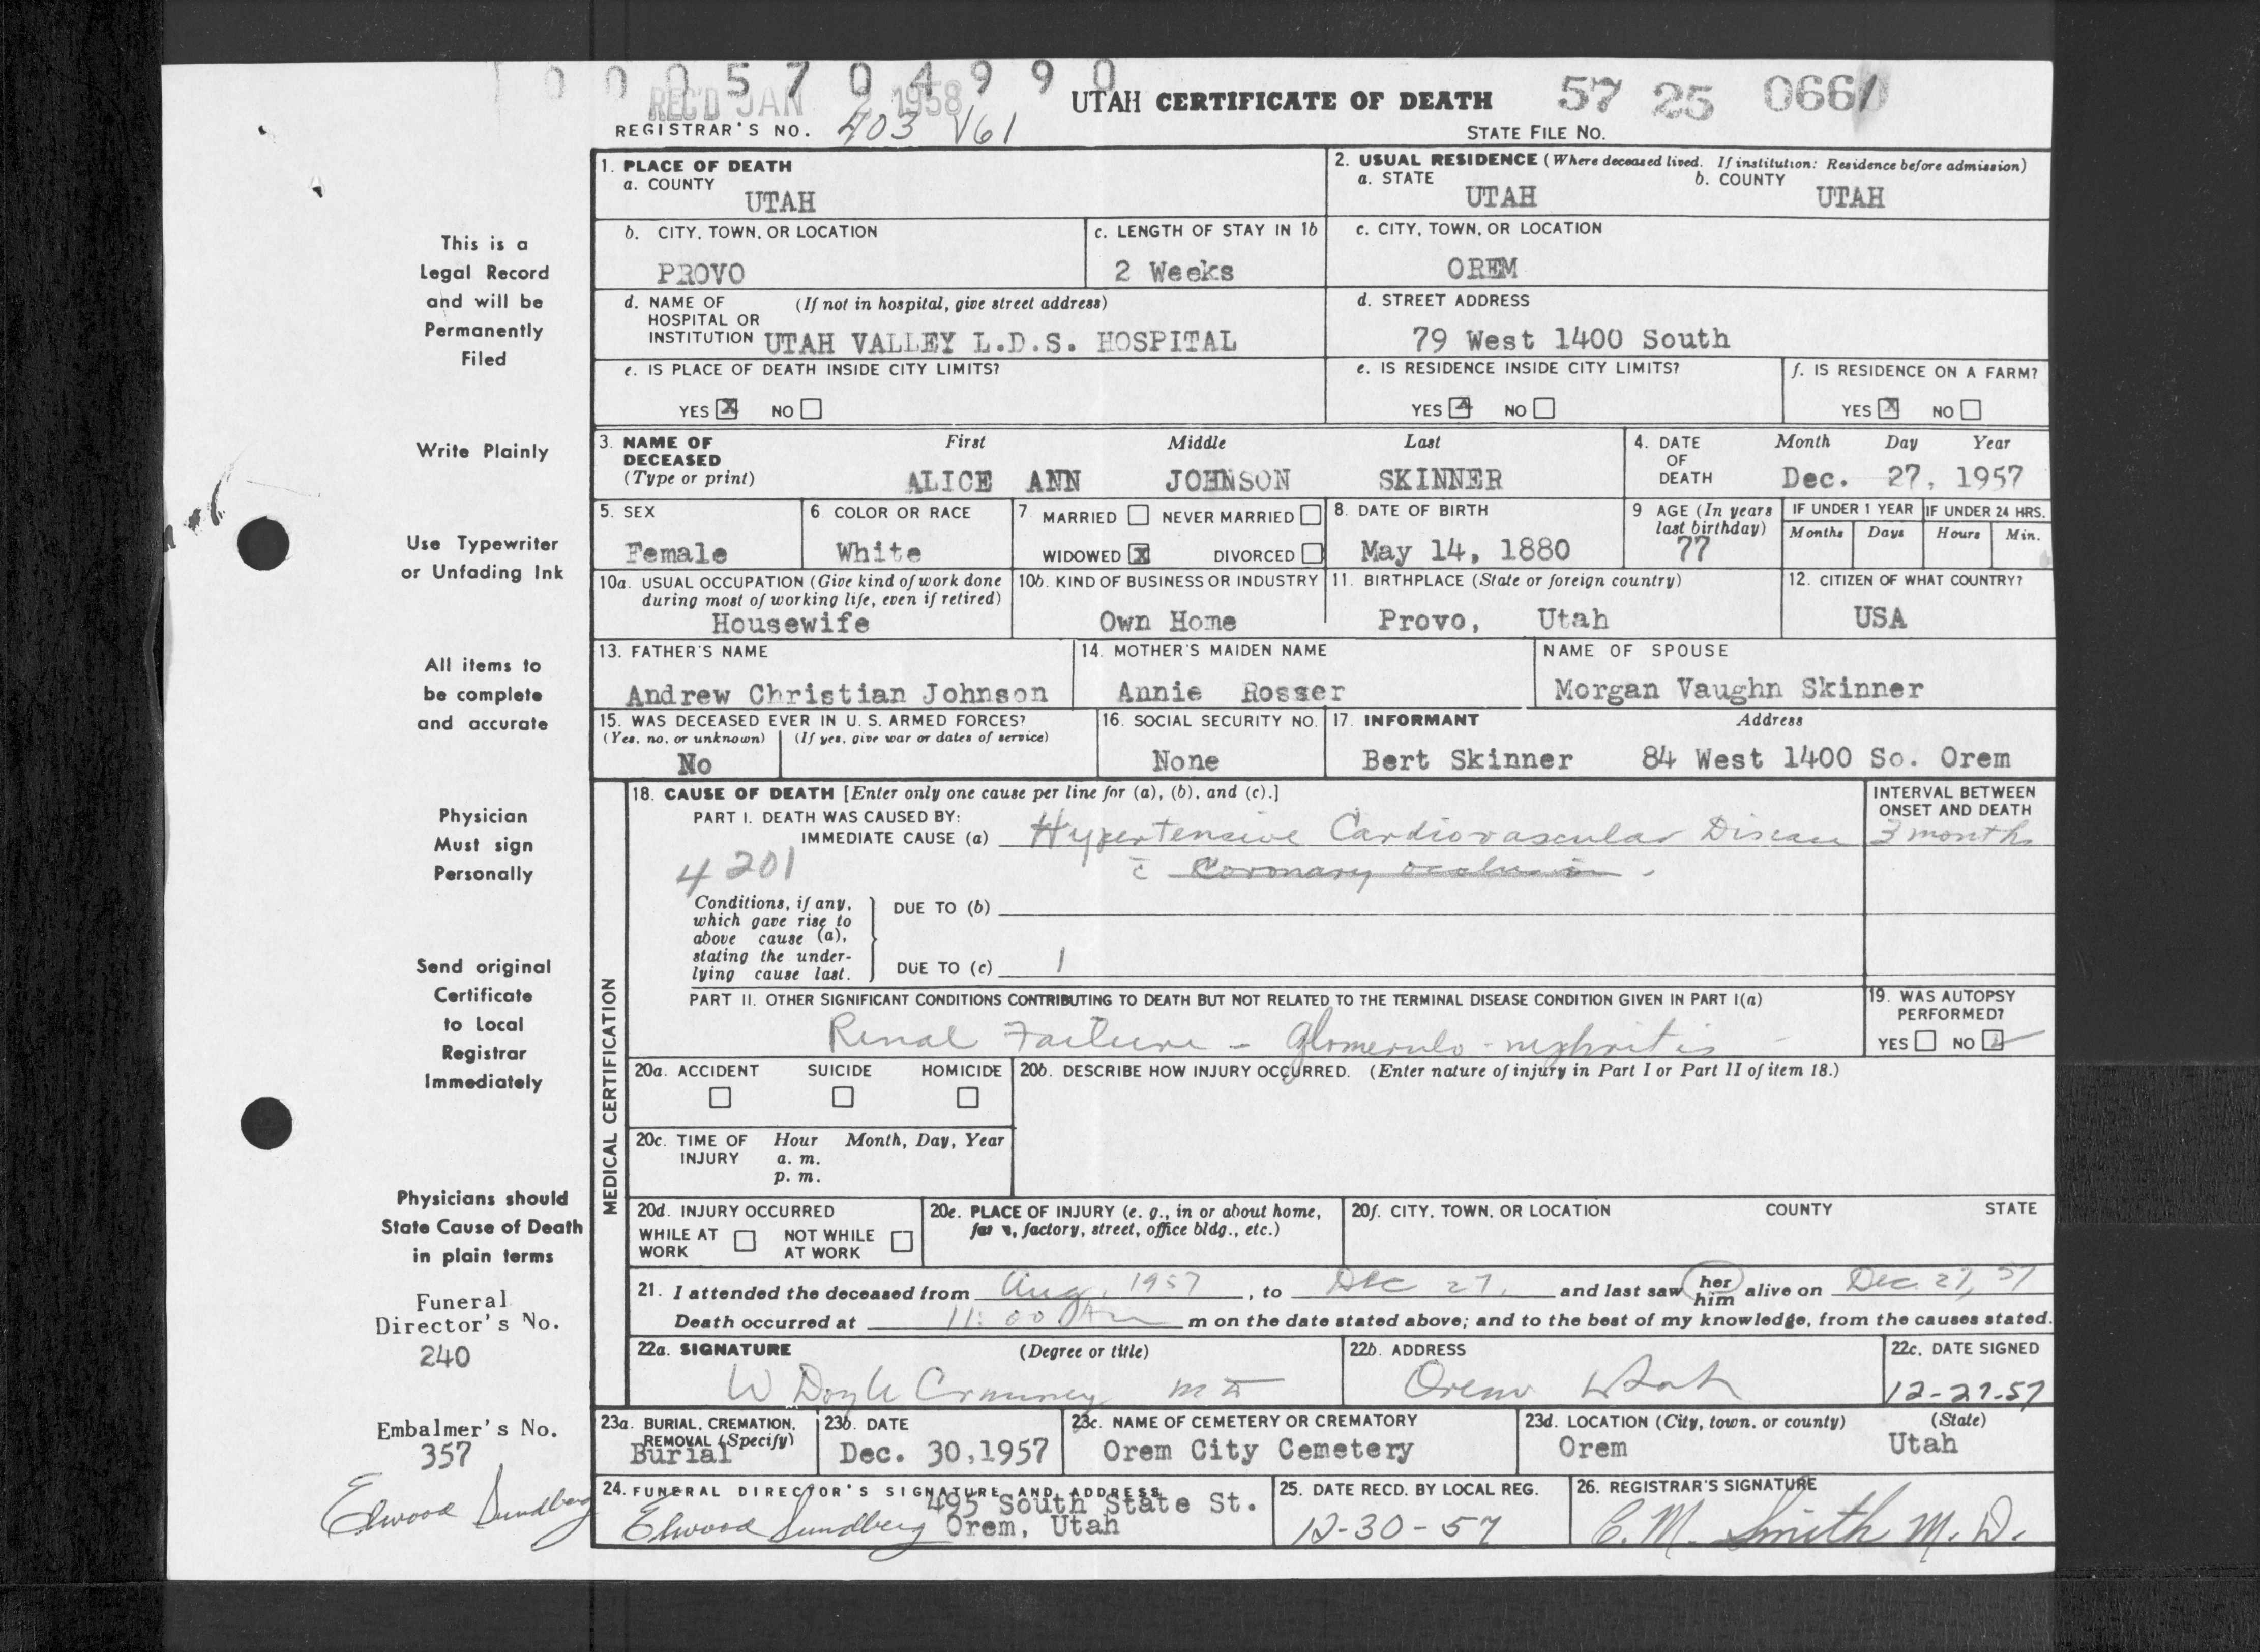 0005704990
REC'D JAN 2 1958
UTAH CERTIFICATE OF DEATH
57 25 0661
REGISTRAR'S NO. 403 V61
STATE FILE NO.
This is a
Legal Record
and will be
Permanently
Filed
Write Plainly
Use Typewriter
or Unfading Ink
All items to
be complete
and accurate
Physician
Must sign
Personally
Send original
Certificate
to Local
Registrar
Immediately
Physicians should
State Cause of Death
in plain terms
Funeral
Director's No.
240
Embalmer's No.
357
Elwood Sundberg
1. PLACE OF DEATH
a. COUNTY
UTAH
2. USUAL RESIDENCE (Where deceased lived. If institution: Residence before admission)
a. STATE b. COUNTY
UTAH UTAH
b. CITY, TOWN, OR LOCATION
PROVO
c. LENGTH OF STAY IN 1b
2 Weeks
c. CITY, TOWN, OR LOCATION
OREM
d. NAME OF (If not in hospital, give street address)
HOSPITAL OR
INSTITUTION UTAH VALLEY L.D.S. HOSPITAL
d. STREET ADDRESS
79 West 1400 South
e. IS PLACE OF DEATH INSIDE CITY LIMITS?
YES X NO
e. IS RESIDENCE INSIDE CITY LIMITS?
YES X NO
f. IS RESIDENCE ON A FARM?
YES X NO
3. NAME OF First Middle Last
DECEASED
(Type or print) ALICE ANN JOHNSON SKINNER
4. DATE Month Day Year
OF
DEATH Dec. 27, 1957
5. SEX
Female
6. COLOR OR RACE
White
7 MARRIED NEVER MARRIED
WIDOWED X DIVORCED
8. DATE OF BIRTH
May 14, 1880
9 AGE (In years
last birthday)
77
IF UNDER 1 YEAR IF UNDER 24 HRS.
Months Days Hours Min.
10a. USUAL OCCUPATION (Give kind of work done
during most of working life, even if retired)
Housewife
10b. KIND OF BUSINESS OR INDUSTRY
Own Home
11. BIRTHPLACE (State or foreign country)
Provo, Utah
12. CITIZEN OF WHAT COUNTRY?
USA
13. FATHER'S NAME
Andrew Christian Johnson
14. MOTHER'S MAIDEN NAME
Annie Rosser
NAME OF SPOUSE
Morgan Vaughn Skinner
15. WAS DECEASED EVER IN U. S. ARMED FORCES?
(Yes, no, or unknown) (If yes, give war or dates of service)
No
16. SOCIAL SECURITY NO.
None
17. INFORMANT Address
Bert Skinner 84 West 1400 So. Orem
MEDICAL CERTIFICATION
18. CAUSE OF DEATH [Enter only one cause per line for (a), (b), and (c).]
INTERVAL BETWEEN
ONSET AND DEATH
PART I. DEATH WAS CAUSED BY:
IMMEDIATE CAUSE (a) Hypertensive Cardiovascular Disease 3 months
4201 c̄ Coronary occlusion.
Conditions, if any,
which gave rise to
above cause (a),
stating the under-
lying cause last.
DUE TO (b)
DUE TO (c) 1
PART II. OTHER SIGNIFICANT CONDITIONS CONTRIBUTING TO DEATH BUT NOT RELATED TO THE TERMINAL DISEASE CONDITION GIVEN IN PART I(a)
Renal Failure - glomerulo-nephritis
19. WAS AUTOPSY
PERFORMED?
YES NO
20a. ACCIDENT SUICIDE HOMICIDE
20b. DESCRIBE HOW INJURY OCCURRED. (Enter nature of injury in Part I or Part II of item 18.)
20c. TIME OF Hour Month, Day, Year
INJURY a. m.
p. m.
20d. INJURY OCCURRED
WHILE AT NOT WHILE
WORK AT WORK
20e. PLACE OF INJURY (e. g., in or about home,
farm, factory, street, office bldg., etc.)
20f. CITY, TOWN, OR LOCATION COUNTY STATE
21. I attended the deceased from Aug, 1957, to Dec 27, and last saw her him alive on Dec. 27, 57
Death occurred at 11:00 Am m on the date stated above; and to the best of my knowledge, from the causes stated.
22a. SIGNATURE (Degree or title)
W Doyle Cranney MD
22b. ADDRESS
Orem Utah
22c. DATE SIGNED
12-27-57
23a. BURIAL, CREMATION,
REMOVAL (Specify)
Burial
23b. DATE
Dec. 30,1957
23c. NAME OF CEMETERY OR CREMATORY
Orem City Cemetery
23d. LOCATION (City, town, or county) (State)
Orem Utah
24. FUNERAL DIRECTOR'S SIGNATURE AND ADDRESS
495 South State St.
Elwood Sundberg Orem, Utah
25. DATE RECD. BY LOCAL REG.
12-30-57
26. REGISTRAR'S SIGNATURE
C. M. Smith M. D.